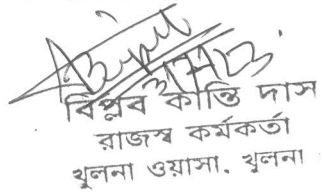 বিপ্লব কান্তি দাস
রাজস্ব কর্মকর্তা
খুলনা ওয়াসা, খুলনা